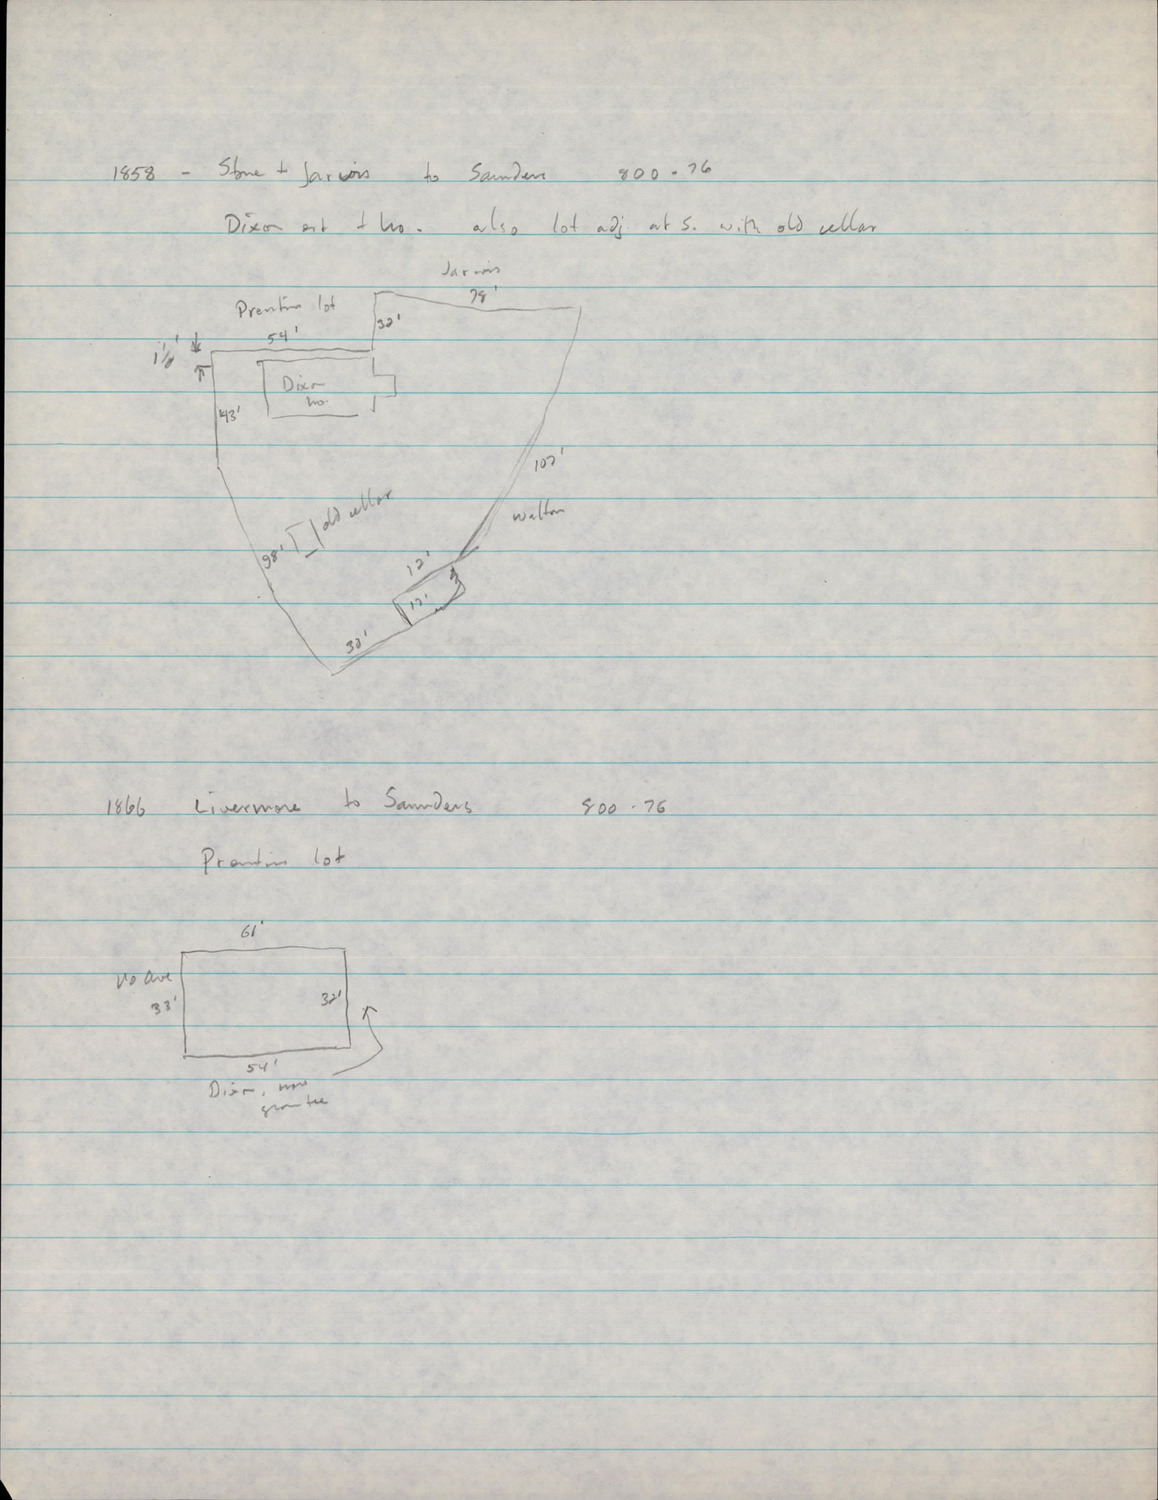 1858 - Stone + Jarvis to Saunders 800.76
Dixon est + ho. also lot adj. at S. with old cellar
Jarvis
78'
Prentiss lot
32'
54'
1 1/2'
Dixon
ho.
43'
102'
Walton
old cellar
98'
12'
12'
32'
1866 Livermore to Saunders 800.76
Prentiss lot
61'
No Ave
33'
32'
54'
Dixon, now
grantee